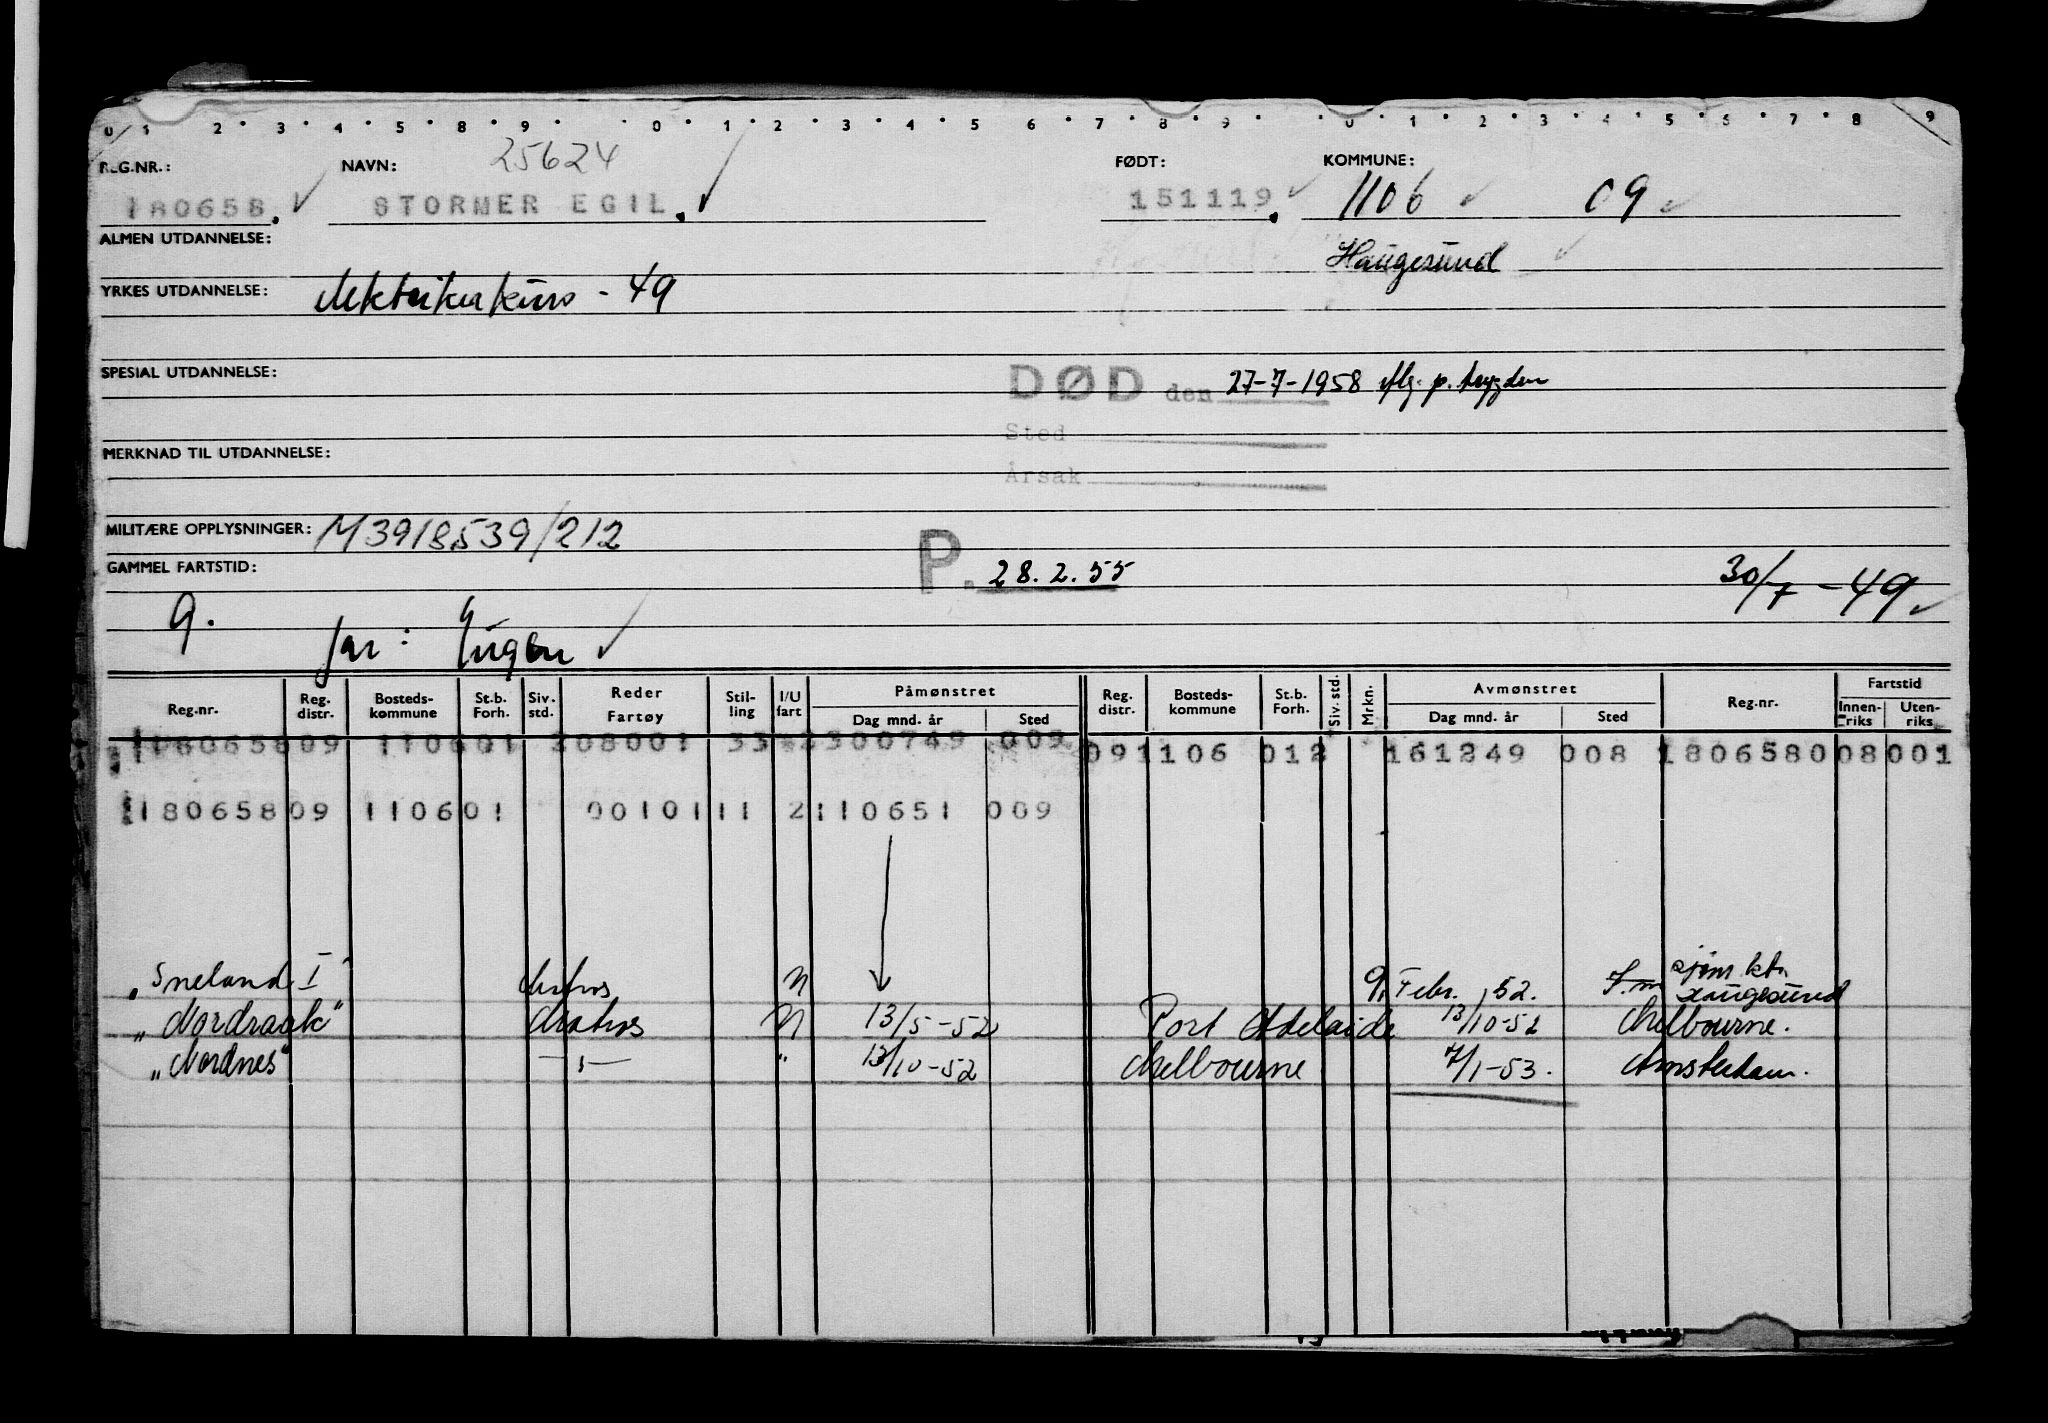 0 1 2 3 4 5 8 9 0 1 2 3 4 5 6 7 8 9 0 1 2 3 4 5 6 7 8 9
25624
REG.NR.: NAVN: FØDT: KOMMUNE:
180658. STORMER EGIL. 151119. 1106 09
ALMEN UTDANNELSE: Haugesund
YRKES UTDANNELSE: elektrikerkurs - 49
SPESIAL UTDANNELSE: DØD den 27-7-1958 flg. p. trygden
Sted
MERKNAD TIL UTDANNELSE:
Årsak
MILITÆRE OPPLYSNINGER: M3918539/212
GAMMEL FARTSTID: P. 28.2.55 30/7 - 49
9.
far: Eugen
Reg.nr. Reg. distr. Bosteds-kommune St.b. Forh. Siv. std. Reder Fartøy Stil-ling I/U fart Påmønstret Dag mnd. år Sted Reg. distr. Bosteds-kommune St.b. Forh. Siv. std. Mrkn. Avmønstret Dag mnd. år Sted Reg.nr. Fartstid Innen-riks Uten-riks
180658 09 1106 01 208001 33 2 300749 009 09 1106 012 161249 008 180658 008 001
180658 09 1106 01 00101 11 2 110651 009
"Sneland I" Matros N 9. Febr. 52. sjøm ktr. Haugesund
"Nordraak" Matros N 13/5-52 Port Adelaide 13/10-52 Melbourne.
"Nordnes" —"— " 13/10-52 Melbourne 7/1-53. Amsterdam.